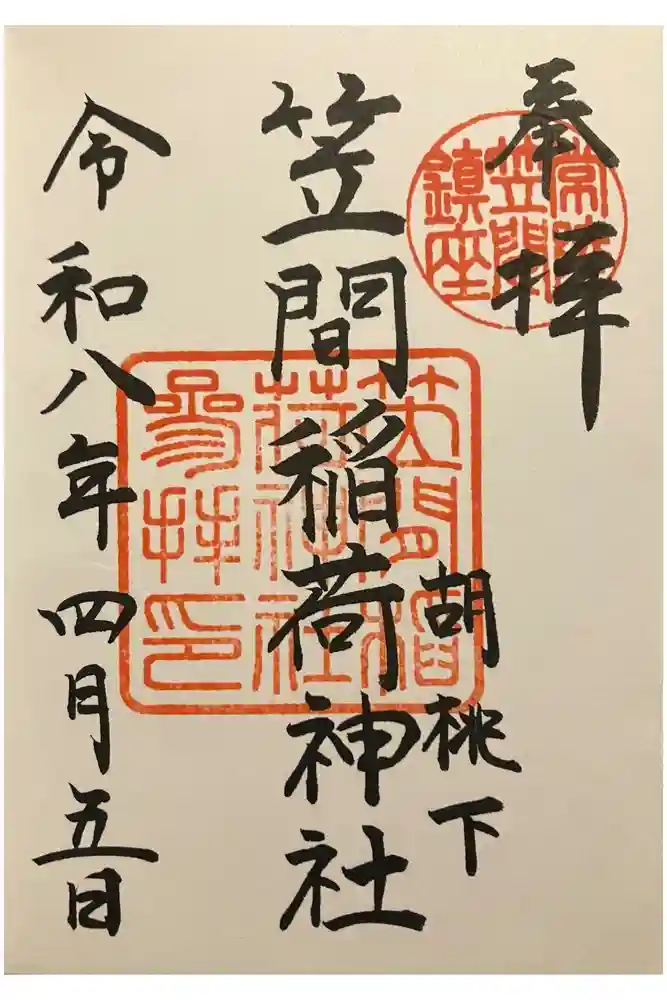 奉拝
常陸
笠間
鎮座
胡桃下
笠間稲荷神社
笠間稲
荷神社
参拝印
令和八年四月五日